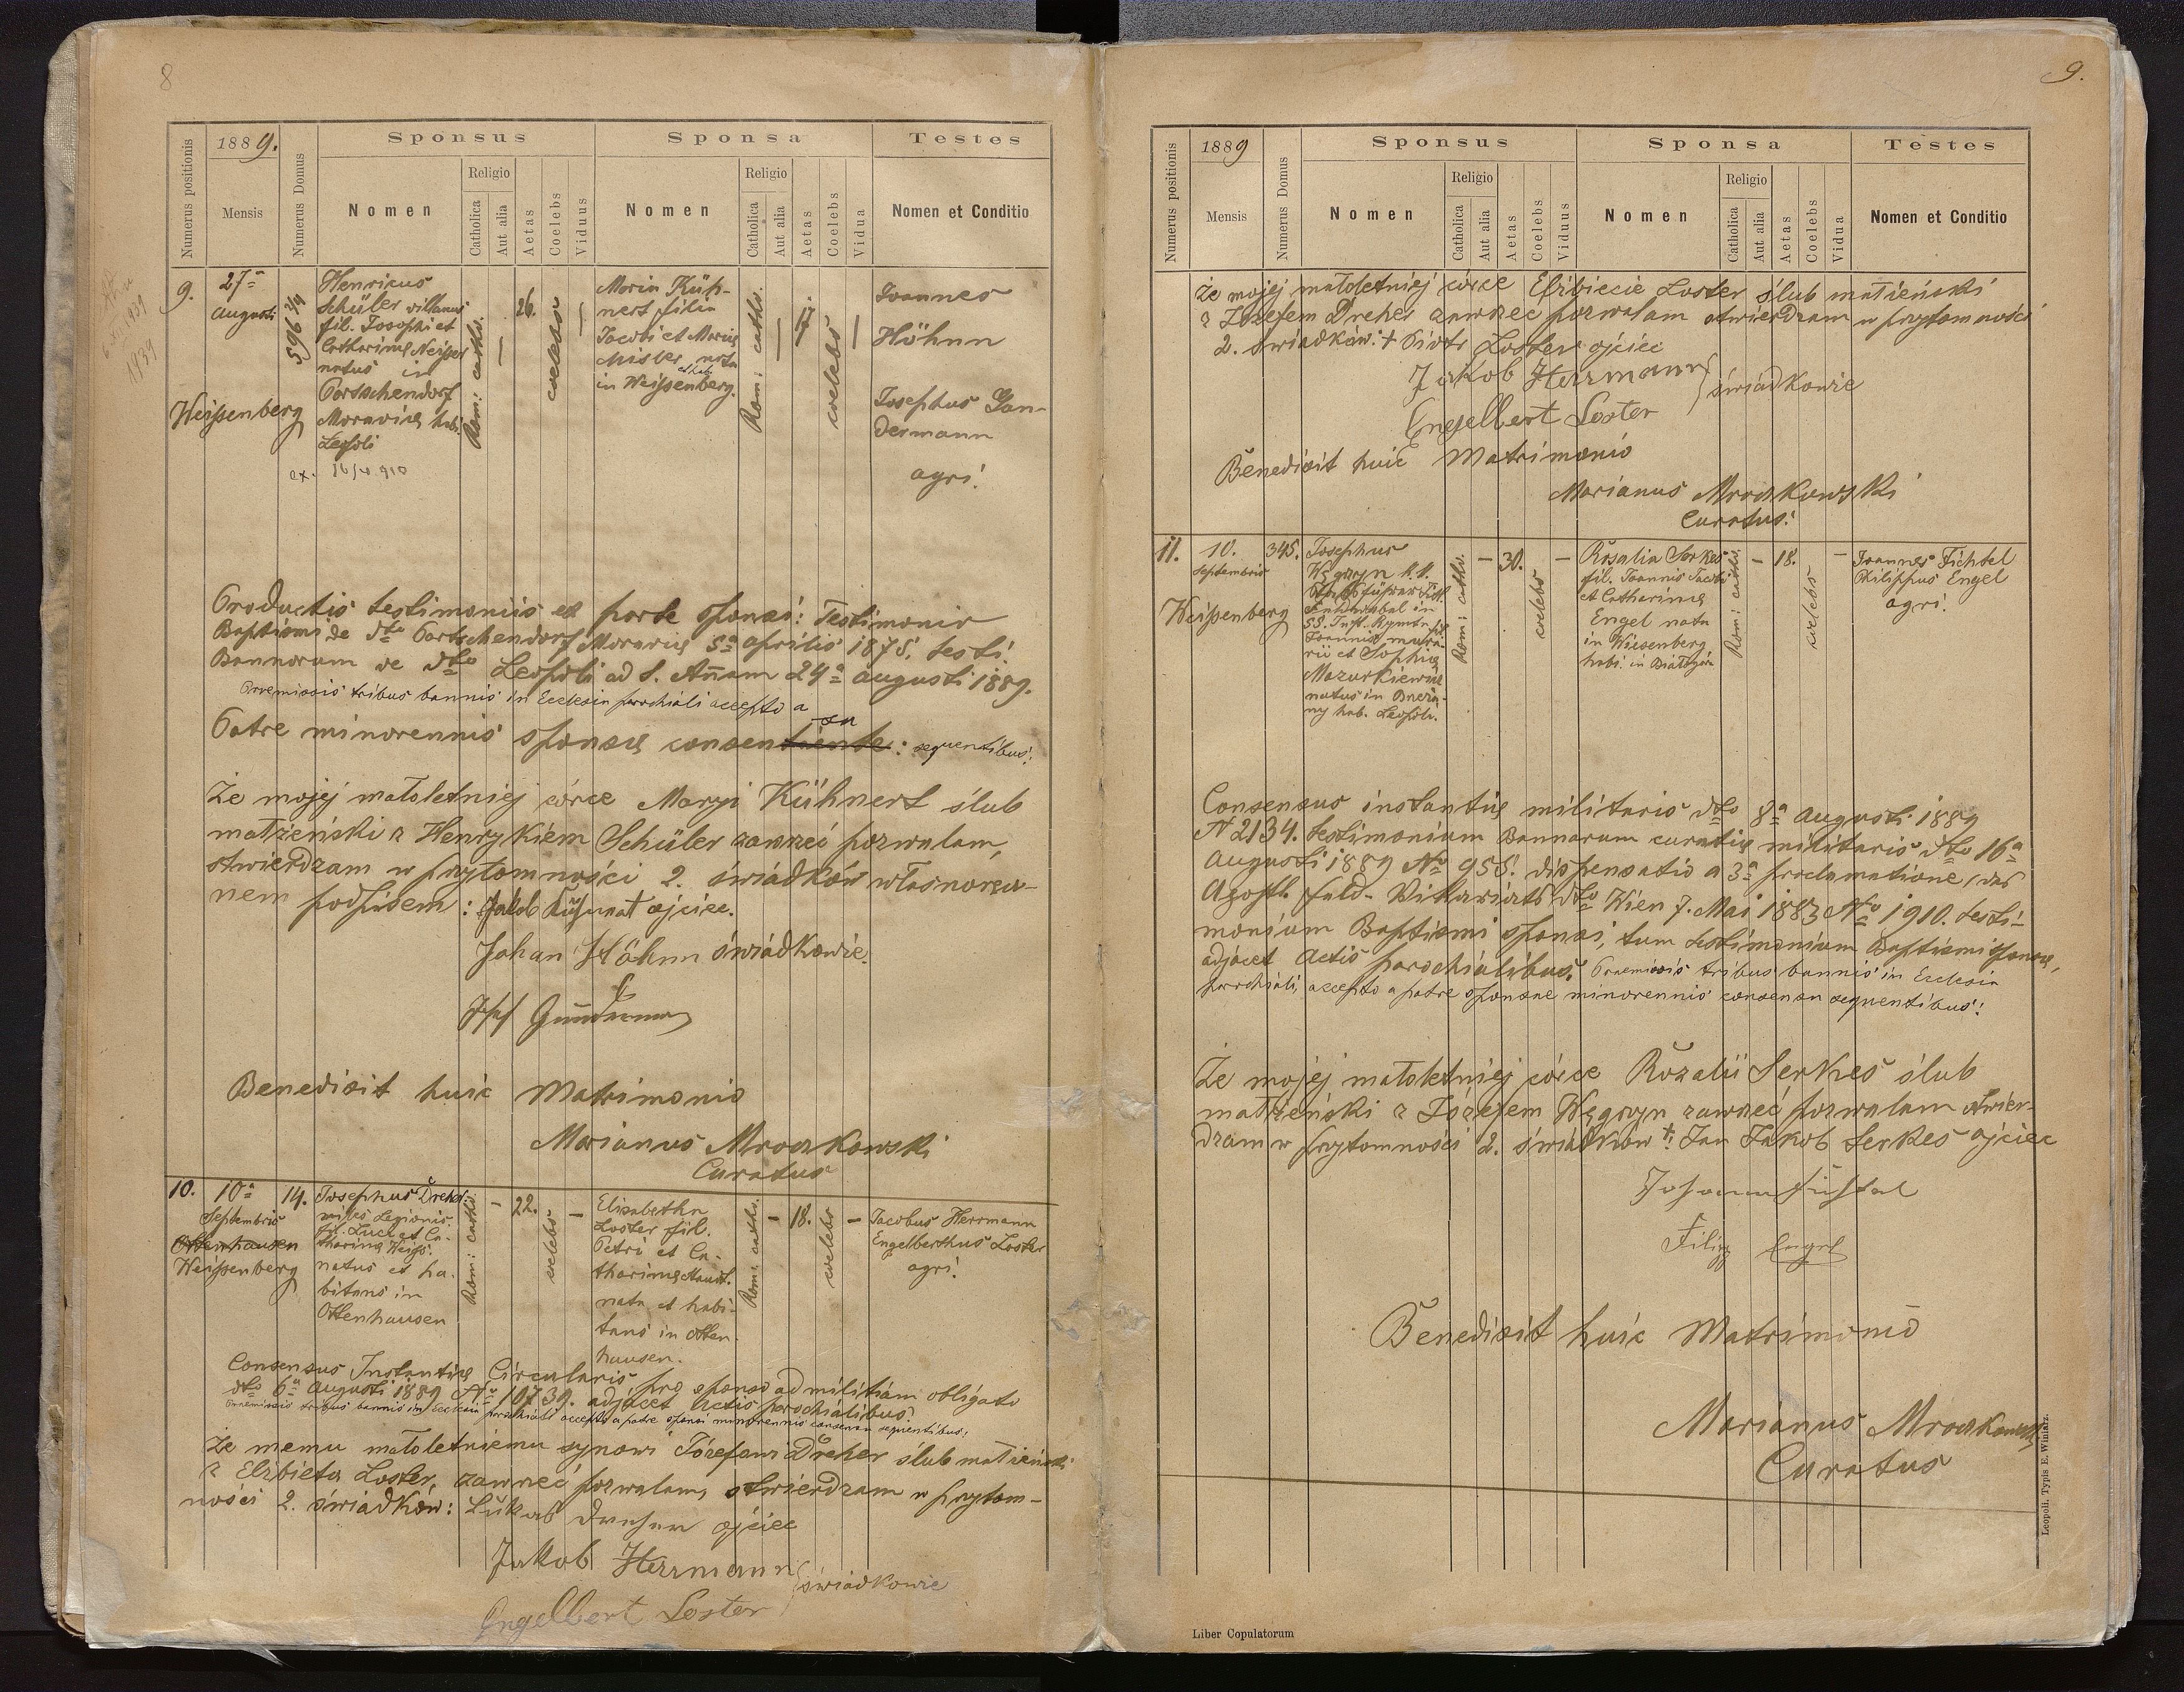 8
Numerus positionis
1889.
Mensis
Numerus Domus
Sponsus
Nomen
Religio
Catholica
Aut alia
Aetas
Coelebs
Viduus
Sponsa
Nomen
Religio
Catholica
Aut alia
Aetas
Coelebs
Vidua
Testes
Nomen et Conditio
9.
27a
Augusti
Weissenberg
596 2/4
Henricus
Schüler villanus
fil. Josephi et
Catharinę Neisser
natus in
Partschendorf
Moravię hab.
Leopoli
Rom: cath.
—
26.
coelebs
—
Maria Küh-
nert filia
Jacobi et Marię
Misler nata
et hab.
in Weissenberg.
Rom: cath.
—
coelebs
—
Joannes
Höhnn
Josephus Gan-
dermann
agri.
Productis testimoniis ex parte sponsi: Testimonio
Baptismi de dto Partschendorf Moravię 5a aprilis 1875, testi.
Bannorum de dto Leopoli ad S. Annam 24a augusti 1889.
Praemissis tribus bannis in Ecclesia parochiali accepto a
Patre minorennis sponsę consentiente su: sequentibus:
Że mojej małoletniej córce Maryi Kühnert ślub
małżeński z Henrykiem Schüler zawrzeć pozwalam,
stwierdzam w przytomności 2. świadków własnoręcz-
nem podpisem: Jakob Kühnert ojciec.
Johan Höhnn świadkowie.
Benedixit huic Matrimonio
Marianus Mroczkowski
Curatus
10.
10a
Septembris
Ottenhausen
Weissenberg
14.
Josephus Dreher
miles Legionis.
fil. Lucę et Ca-
tharinę Weiss.
natus et ha-
bitans in
Ottenhausen
Rom: cath.
—
22.
coelebs
—
Elisabetha
Loster fil.
Petri et Ca-
tharinę Mandt.
nata et habi-
tans in Otten-
hausen.
Rom: cath.
—
18.
coelebs
—
Jacobus Herrmann
Engelberthus Loster
agri.
Consensus Instantię Circularis pro sponso ad militiam obligato
dto 6a Augusti 1889 No 10739. adjacet Actis parochialibus.
Praemissis tribus bannis in Ecclesia parochiali accepto a patre sponsi minorennis consensu sequentibus:
Że memu małoletniemu synowi Józefowi Dreher ślub małżeński
z Elżbietą Loster, zawrzeć pozwalam, stwierdzam w przytom-
ności 2. świadków: Lukas Dreher ojciec
Jakob Herrmann
Engelbert Loster
świadkowie
9.
Numerus positionis
1889
Mensis
Numerus Domus
Sponsus
Nomen
Religio
Catholica
Aut alia
Aetas
Coelebs
Viduus
Sponsa
Nomen
Religio
Catholica
Aut alia
Aetas
Coelebs
Vidua
Testes
Nomen et Conditio
Że mojej małoletniej córce Elżbiecie Loster ślub małżeński
z Józefem Dreher zawrzeć pozwalam stwierdzam w przytomności
2. świadków: + Piotr Loster ojciec
Jakob Herrmann
Engelbert Loster
świadkowie
Benedixit huic Matrimonio
Marianus Mroczkowski
Curatus.
11.
10.
Septembris
Weissenberg
345.
Josephus
Węgrzyn k.k.
in
Joannis mura-
rii et Sophię
Mazurkiewicz
natus in Brzeża-
ny hab. Leopoli.
Rom: cath.
—
30.
coelebs
—
Rosalia Serkes
fil. Joannis Jacobi
et Catharinę
Engel nata
in Wiesenberg
hab. in Białogóra
Rom: cath.
—
18.
coelebs
—
Joannes Fichtel
Philippus Engel
agri.
Consensus instantię militaris dto 8a Augusti 1889
N 2134. testimonium Bannorum curatię militaris dto 16a
Augusti 1889 No 955. dispensatio a 3a proclamatione, das
Apost. Feld-Vikariats dto Wien 7. Mai 1883 No 1910. testi-
monium Baptismi sponsi, tum testimonium Baptismi sponsę,
adjacet Actis parochialibus. Praemissis tribus bannis in Ecclesia
parochiali, accepto a patre sponsae minorennis consensu sequentibus:
Że mojej małoletniej córce Rozalii Serkes ślub
małżeński z Józefem Węgrzyn zawrzeć pozwalam stwier-
dzam w przytomności 2. świadków +: Jan Jakob Serkes ojciec
Filipp Engel
Benedixit huic Matrimonio
Marianus Mroczkowski
Curatus
Leopoli. Typis E. Winiarz.
Liber Copulatorum